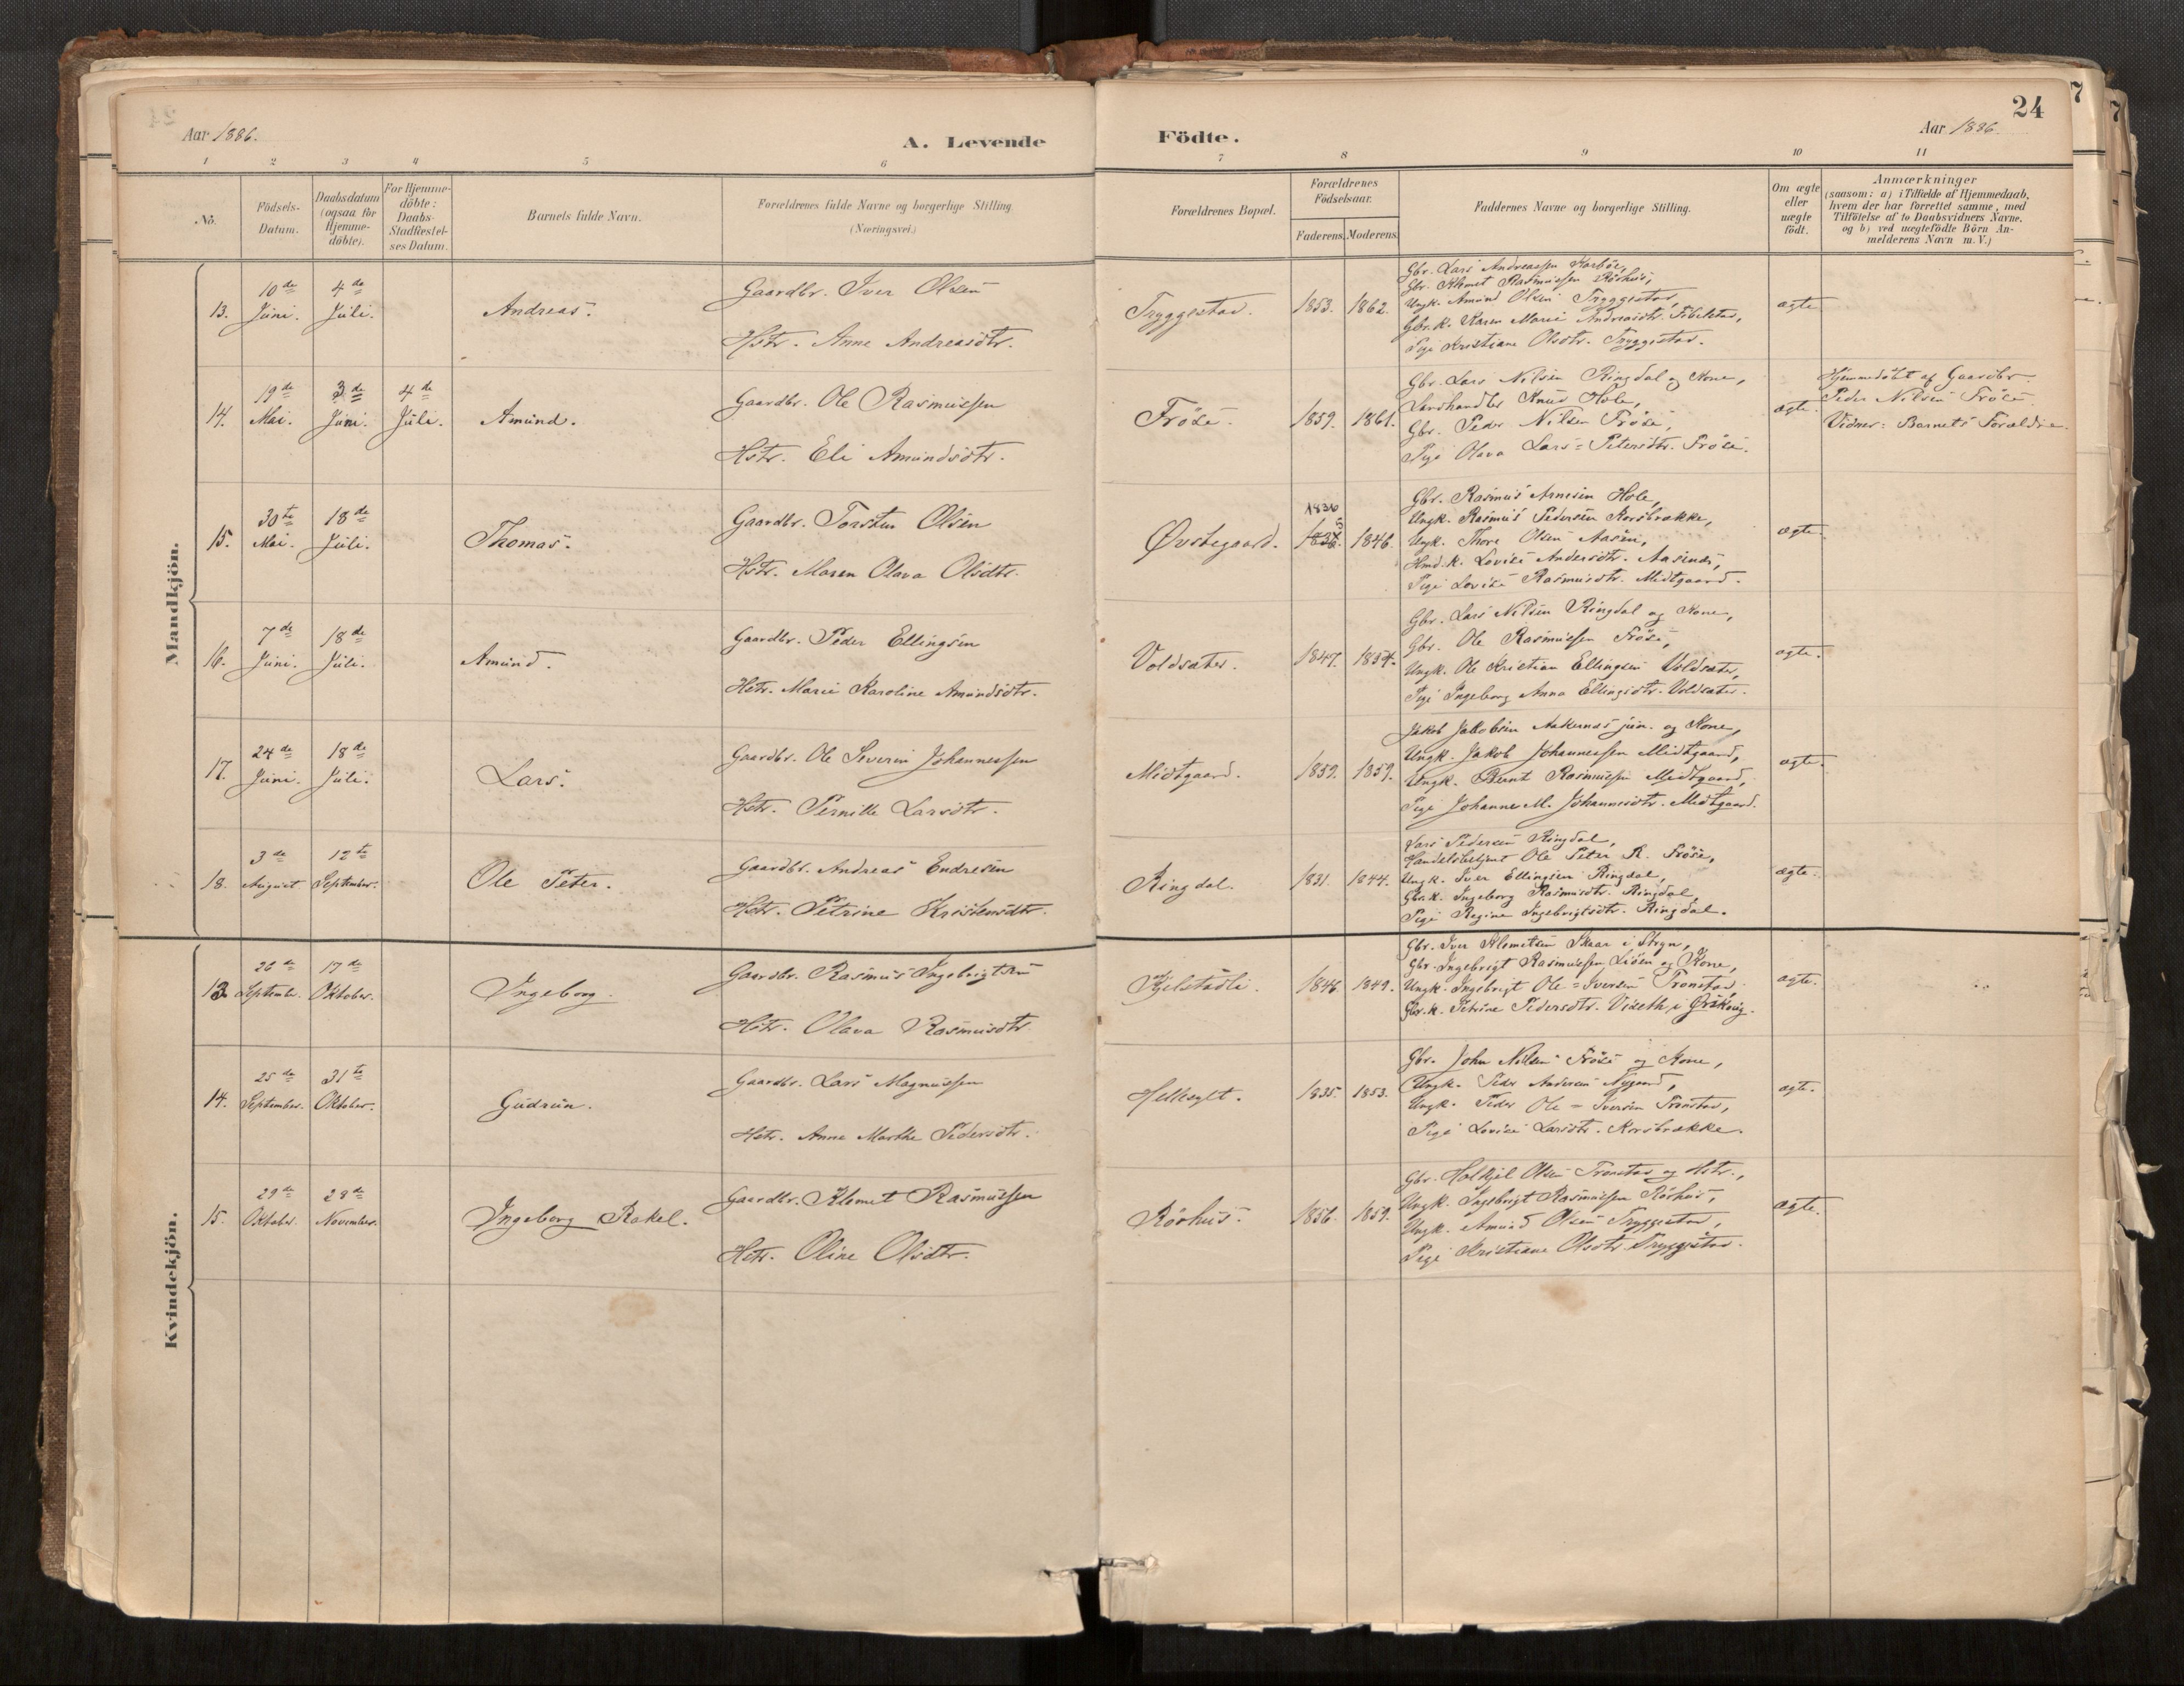 24
Aar 1886.
A. Levende
Födte.
Aar 1886.
1 2 3 4 5 6 7 8 9 10 11
No.
Födsels-
Datum.
Daabsdatum
(ogsaa for
Hjemme-
döbte).
For Hjemme-
döbte:
Daabs-
Stadfæstel-
ses Datum.
Barnets fulde Navn.
Forældrenes fulde Navne og borgerlige Stilling.
(Næringsvei.)
Forældrenes Bopæl.
Forældrenes
Födselsaar.
Faderens. Moderens.
Faddernes Navne og borgerlige Stilling.
Om ægte
eller
uægte
födt.
Anmærkninger
(saasom: a) i Tilfælde af Hjemmedaab,
hvem der har forrettet samme, med
Tilföielse af to Daabsvidners Navne,
og b) ved uægtefödte Börn An-
melderens Navn m. V.)
Mandkjön.
13.
10de
Juni.
4de
Juli.
Andreas.
Gaardbr. Iver Olsen
Hstr. Anne Andreasdtr.
Tryggestad.
1853. 1862.
Gbr. Lars Andreassen Korböe,
Gbr. Klemet Rasmussen Rörhus,
Ungk. Amund Olsen Tryggestad,
Gbr.k. Karen Marie Andreasdtr. Fibelstad,
Pige Kristiane Olsdtr. Tryggestad.
ægte
14.
19de
Mai.
3de
Juni.
4de
Juli.
Amund.
Gaardbr. Ole Rasmussen
Hstr. Eli Amundsdtr.
Fröse.
1859. 1861.
Gbr. Lars Nilsen Ringdal og Kone,
Landhandler Knud Hole,
Gbr. Peder Nilsen Fröse,
Pige Olava Lars=Petersdtr. Fröse.
ægte.
Hjemmedöbt af Gaardbr.
Peder Nilsen Fröse.
Vidner: Barnets Forældre.
15.
30te
Mai.
18de
Juli.
Thomas.
Gaardbr. Torsten Olsen
Hstr. Maren Olava Olsdtr.
Øvstegaard.
1836
1846.
Gbr. Rasmus Arnesen Hole,
Ungk. Rasmus Pedersen Korsbrække,
Ungk. Thore Olsen Aasen,
Hmd.k. Lovise Andersdtr. Aasenes,
Pige Lovise Rasmusdtr. Midtgaard.
ægte.
16.
7de
Juni.
18de
Juli.
Amund.
Gaardbr. Peder Ellingsen
Hstr. Marie Karoline Amundsdtr.
Voldsæter.
1847. 1854.
Gbr. Lars Nilsen Ringdal og Kone,
Gbr. Ole Rasmussen Fröse,
Ungk. Ole Kristian Ellingsen Voldsæter,
Pige Ingeborg Anna Ellingsdtr. Voldsæter.
ægte.
17.
24de
Juni.
18de
Juli.
Lars.
Gaardbr. Ole Severin Johannessen
Hstr. Pernille Larsdtr.
Midtgaard.
1859. 1859.
Jakob Jakobsen Aakernes jun. og Kone,
Ungk. Jakob Johannessen Midtgaard,
Ungk. Bernt Rasmussen Midtgaard,
Pige Johanne M. Johannesdtr. Midtgaard.
ægte.
18.
3de
August
12te
September.
Ole Peter.
Gaardbr. Andreas Endresen
Hstr. Petrine Kristensdtr.
Ringdal.
1831. 1844.
Lars Pedersen Ringdal,
Handelsbetjent Ole Peter R. Fröse,
Ungk. Iver Ellingsen Ringdal,
Gbr.k. Ingeborg Rasmusdtr. Ringdal,
Pige Regine Ingebrigtsdtr. Ringdal.
ægte.
Kvindekjön.
13.
26de
September.
17de
Oktober.
Ingeborg.
Gaardbr. Rasmus Ingebrigtsen
Hstr. Olava Rasmusdtr.
Kjelstadli.
1846. 1849.
Gbr. Iver Klemetsen Skaar i Stryn,
Gbr. Ingebrigt Rasmussen Liöen og Kone,
Ungk. Ingebrigt Ole=Iversen Tronstad,
Gbr.k. Petrine Pedersdtr. Viseth i Ørskoug.
ægte.
14.
25de
September.
31te
Oktober.
Gudrun.
Gaardbr. Lars Magnussen
Hstr. Anne Marthe Pedersdtr.
Hellesylt.
1835. 1853.
Gbr. John Nilsen Fröse og Kone,
Ungk. Peder Andersen Nygaard,
Ungk. Peder Ole=Iversen Tronstad,
Pige Lovise Larsdtr. Korsbrække.
ægte.
15.
29de
Oktober.
28de
November.
Ingeborg Rakel.
Gaardbr. Klemet Rasmussen
Hstr. Oline Olsdtr.
Rörhus.
1856. 1859.
Gbr. Halkjel Olsen Tronstad og Hstr.,
Ungk. Ingebrigt Rasmussen Rörhus,
Ungk. Amund Olsen Tryggestad,
Pige Kristiane Olsdtr. Tryggestad.
ægte.